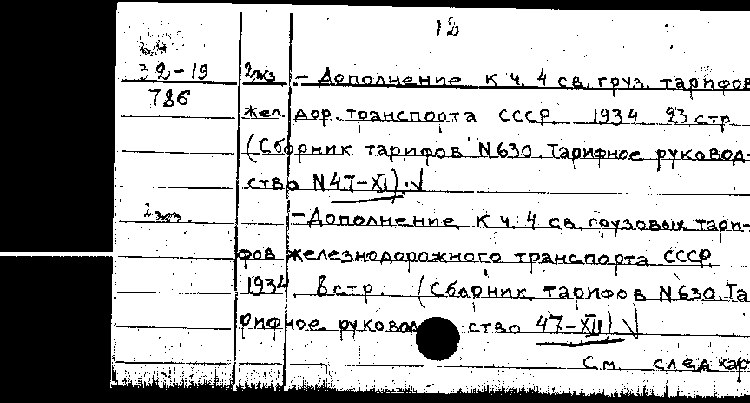 12
32-19 2экз – Дополнение к ч. 4 св. груз. тарифов
786 жел. дор. транспорта СССР. 1934 23 стр
(Сборник тарифов N630. Тарифное руковод-
ство N 47-XI).√
2 экз. – Дополнение к ч. 4 св. грузовых тари-
фов железнодорожного транспорта СССР.
1934. 8 стр. (Сборник тарифов N630. Та
рифное руковод ство 47-XII) √
См. след кар